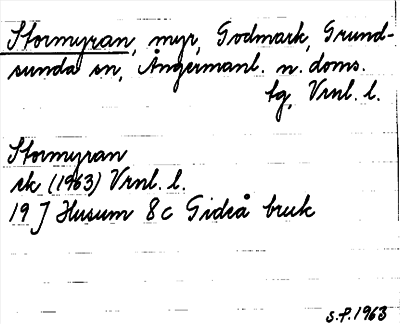 Stormyran, myr, Godmark, Grund-
sunda sn, Ångermanl. n. doms.
tg, Vrnl. l.
Stormyran
rk (1963) Vrnl. l.
19 J Husum 8c Gideå bruk
S.F. 1963